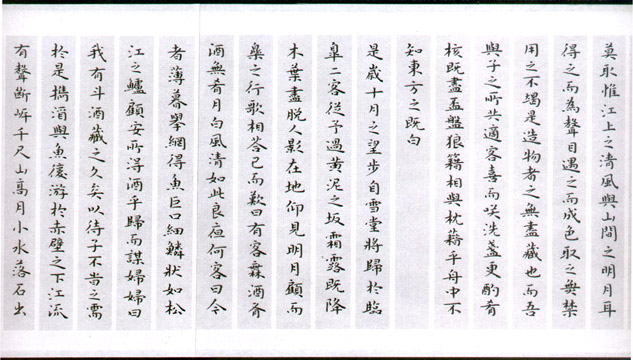 莫取惟江上之清風與山間之明月耳
得之而為聲目遇之而成色取之無禁
用之不竭是造物者之無盡藏也而吾
與子之所共適客喜而咲洗盞更酌肴
核既盡盃盤狼籍相與枕藉乎舟中不
知東方之既白
是歲十月之望步自雪堂將歸於臨
皐二客從予過黃泥之坂霜露既降
木葉盡脫人影在地仰見明月顧而
樂之行歌相答已而歎曰有客無酒有
酒無肴月白風清如此良夜何客曰今
者薄暮舉網得魚巨口細鱗狀如松
江之鱸顧安所得酒乎歸而謀婦婦曰
我有斗酒藏之久矣以待子不旹之需
於是攜酒與魚復游於赤壁之下江流
有聲斷岸千尺山高月小水落石出